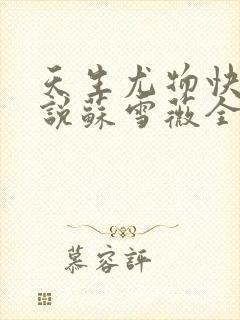 天生尤物快
說蘇雪薇全
慕容評